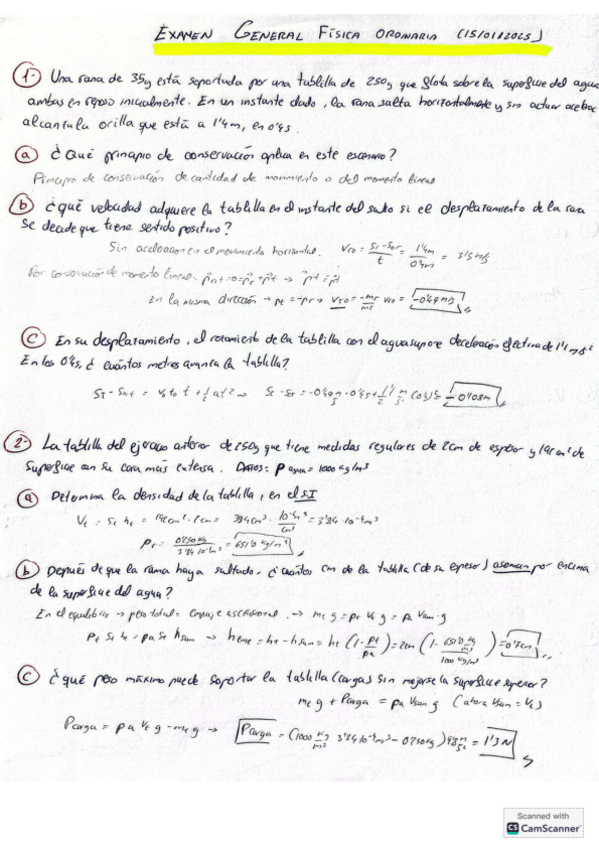 EXAMEN GENERAL FÍSICA ORDINARIA (15/01/2025)
1- Una rana de 35g está soportada por una tablilla de 250g que flota sobre la superficie del agua
ambas en reposo inicialmente. En un instante dado, la rana salta horizontalmente y sin actuar
alcanza la orilla que está a 1'4m, en 0'4s.
a ¿Qué principio de conservación aplica en este escenario?
Principio de conservación de cantidad de movimiento o del momento lineal
b ¿qué velocidad adquiere la tablilla en el instante del salto si el desplazamiento de la rana
se decide que tiene sentido positivo?
Sin aceleracion en el movimiento horizontal. Vro = Sr-Sor/t = 1'4m/0'4m = 3'5m/s
Por conservación de momento lineal:
En la misma dirección → pt = -pr → vto = -mr/mt vro = -0'49m/s
c En su desplazamiento, el rozamiento de la tablilla con el agua supone deceleración efectiva de 1'1m/s²
En los 0'4s, ¿cuántos metros avanza la tablilla?
St - Sot = voto t + 1/2 at² → = -0'108m
2- La tablilla del ejercicio anterior de 250g que tiene medidas regulares de 2cm de espesor y 192cm² de
superficie en su cara más extensa. DATOS: ρ agua = 1000 kg/m³
a Determina la densidad de la tablilla, en el SI
Vt = St ht = 192cm² · 2cm = 384cm³ · 10⁻⁶m³/cm³ = 3'84·10⁻⁴m³
ρt = 0'250kg/3'84·10⁻⁴m³ = 651'0 kg/m³
b Después de que la rana haya saltado, ¿cuántos cm de la tablilla (de su espesor) asoman por encima
de la superficie del agua?
En el equilibrio → peso total = empuje ascensional. → mt g = ρt Vt g = ρa Vsum · g
ρt St ht = ρa St hsum → heme = ht - hsum = ht (1 - ρt/ρa) = 2cm (1 - 651'0 kg/m³/1000 kg/m³) = 0'7cm
c ¿qué peso máximo puede soportar la tablilla (carga) sin mojarse la superficie superior?
mt g + Pcarga = ρa Vsum g (ahora Vsum = Vt)
Pcarga = ρa Vt g - mt g → Pcarga = (1000 kg/m³ 3'84·10⁻⁴m³ - 0'250kg) 9'8 m/s² = 1'3N
Scanned with
CS CamScanner